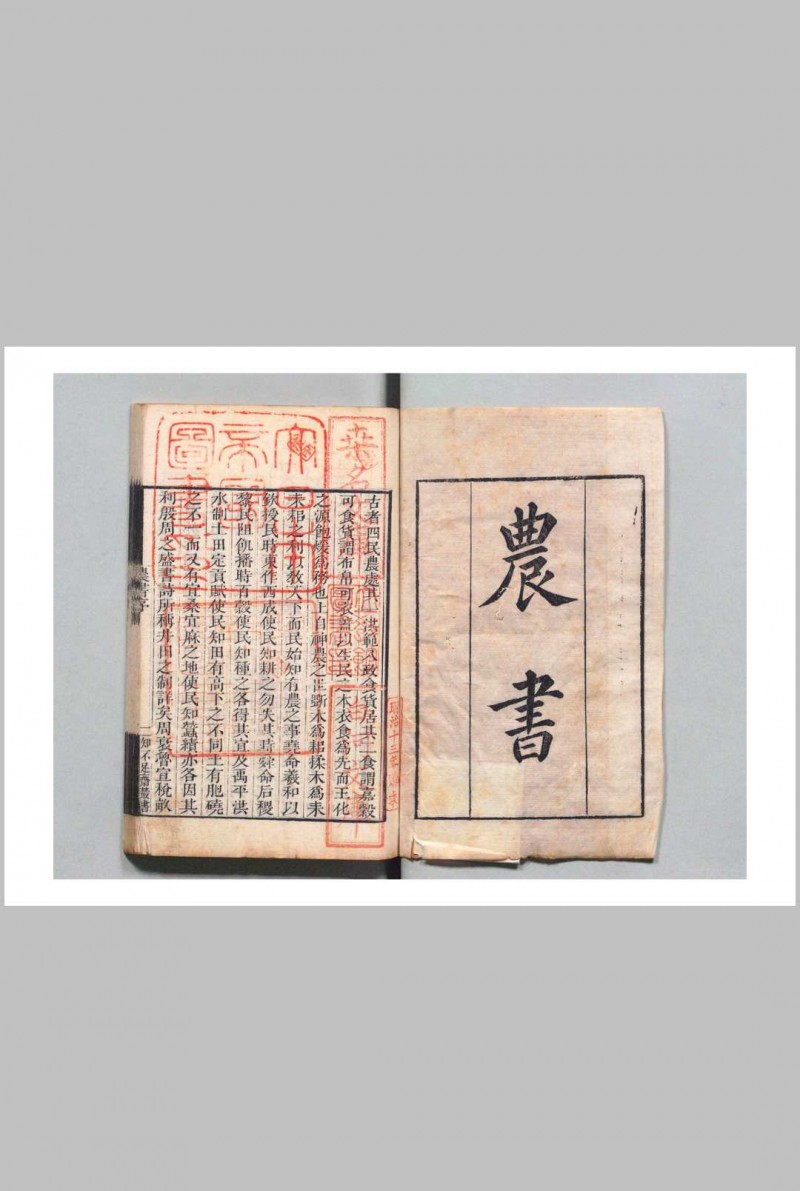 農書
古者四民農處其一洪範八政食貨居其二食謂嘉穀
可食貨謂布帛可衣蓋以生民之本衣食爲先而王化
之源飽煖爲務也上自神農之世斲木爲耜揉木爲耒
耒耜之利以教天下而民始知有農之事堯命羲和以
欽授民時東作西成使民知耕之勿失其時舜命后稷
黎民阻飢播時百穀使民知種之各得其宜及禹平洪
水制土田定貢賦使民知田有高下之不同土有肥磽
之不一而又有宜桑宜麻之地使民知蠶績亦各因其
利殷周之盛書詩所稱井田之制詳矣周衰魯宣稅畝
農書序
一
知不足齋叢書
帝國
圖書
桑名
明治十三年